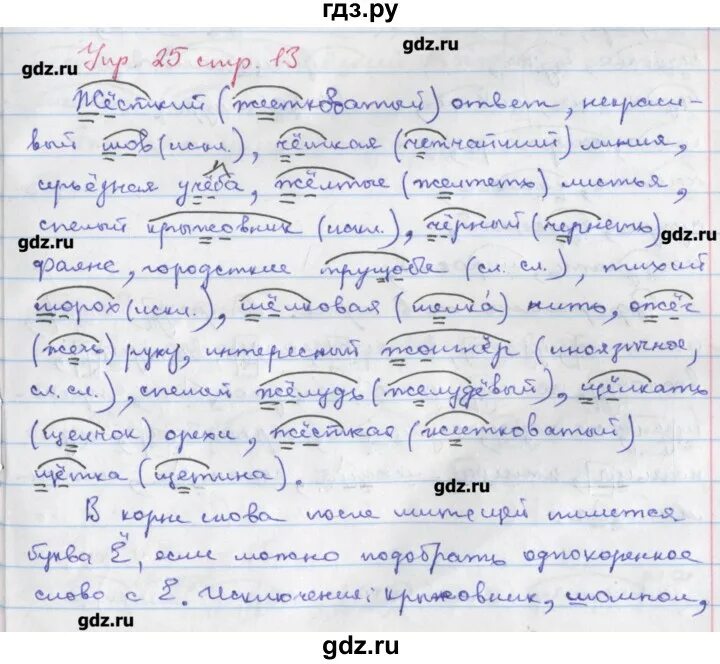 гдз.ру
gdz.ru
gdz.ru
Упр. 25 стр. 13
Жёсткий (жестковатый) ответ, некраси-
вый шов (искл.), чёткая (четчайший) линия,
серьёзная учёба, жёлтые (желтеть) листья,
спелый крыжовник (искл.), чёрный (чернеть)
gdz.ru
gdz.ru
фаянс, городские трущобы (сл. сл.), тихий
шорох (искл.), шёлковая (шелка́) нить, ожёг
(жечь) руку, интересный жонглёр (иноязычное,
сл. сл.), спелый жёлудь (желудёвый), щёлкать
(щелчок) орехи, жёсткая (жестковатый)
щётка (щетина).
gdz.ru
В корне слова после шипящей пишется
буква Ё, если можно подобрать однокоренное
слово с Е. Исключения: крыжовник, шомпол,
gdz.ru
gdz.ru